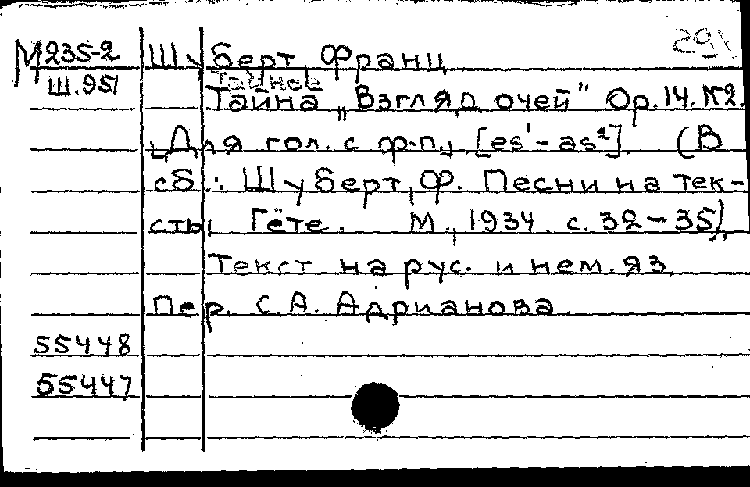 М235-2 Шуберт Франц 291
Ш.951 Тайное
Тайна „Взгляд очей" Ор. 14. №2.
Для гол. с ф-п., [es¹-as²]. (В
сб.: Шуберт, Ф. Песни на тек-
сты Гёте. М., 1934. с. 32-35).
Текст на рус. и нем. яз.
Пер. С. А. Адрианова.
55448
55447